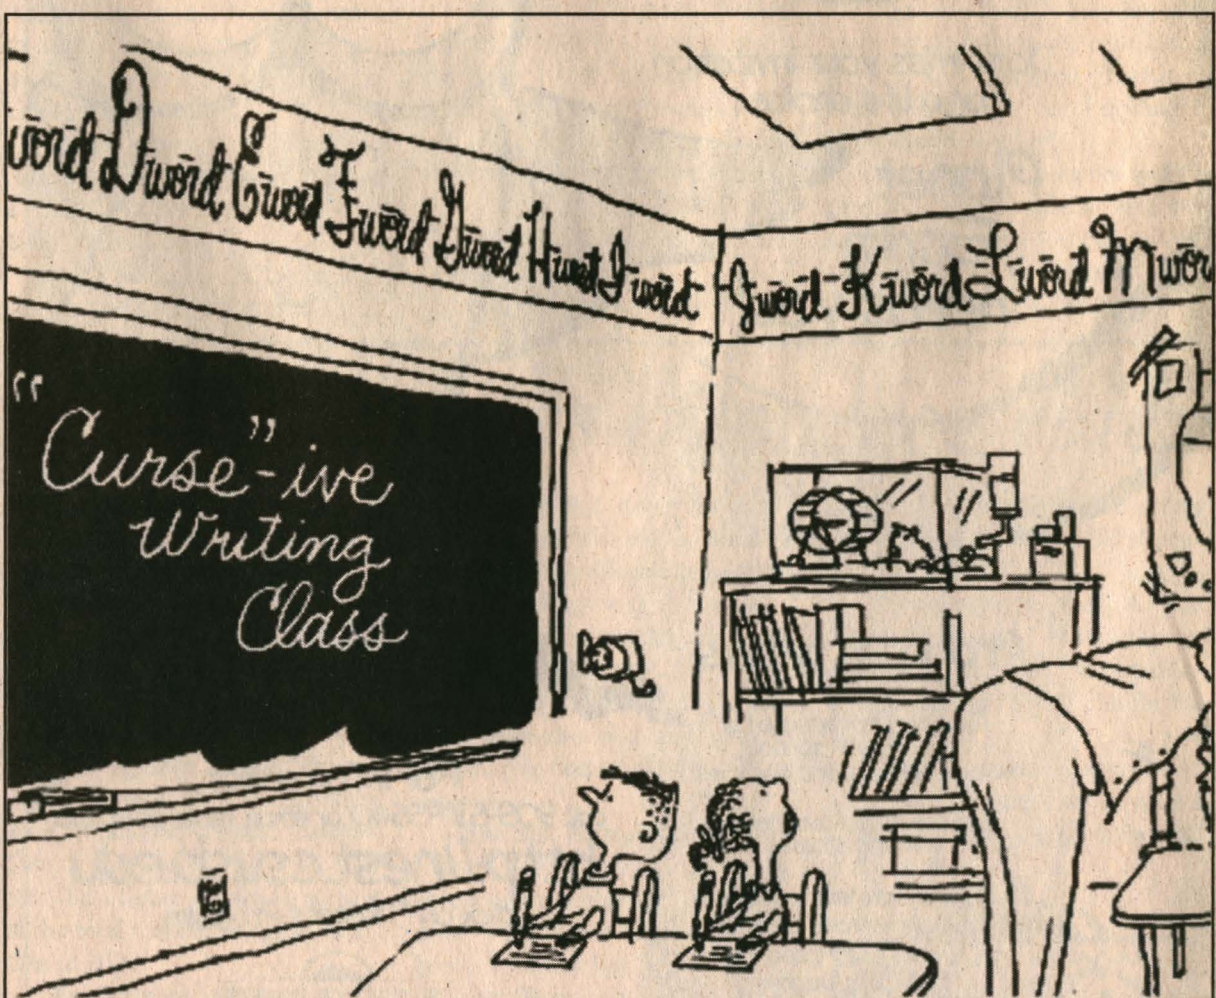 word Dword Eword Fword Gword Hword Iword Jword Kword Lword Mwor
"Curse"-ive
Writing
Class